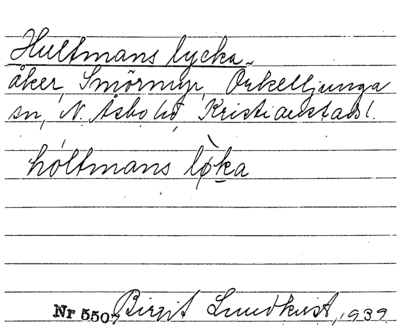 Hultmans lycka
åker, Smörmyr, Örkelljunga
sn, N. Åsbo hd, Kristianstads l.
hóltmans lø̀ka
Nr 5507, Birgit Lundkvist, 1939